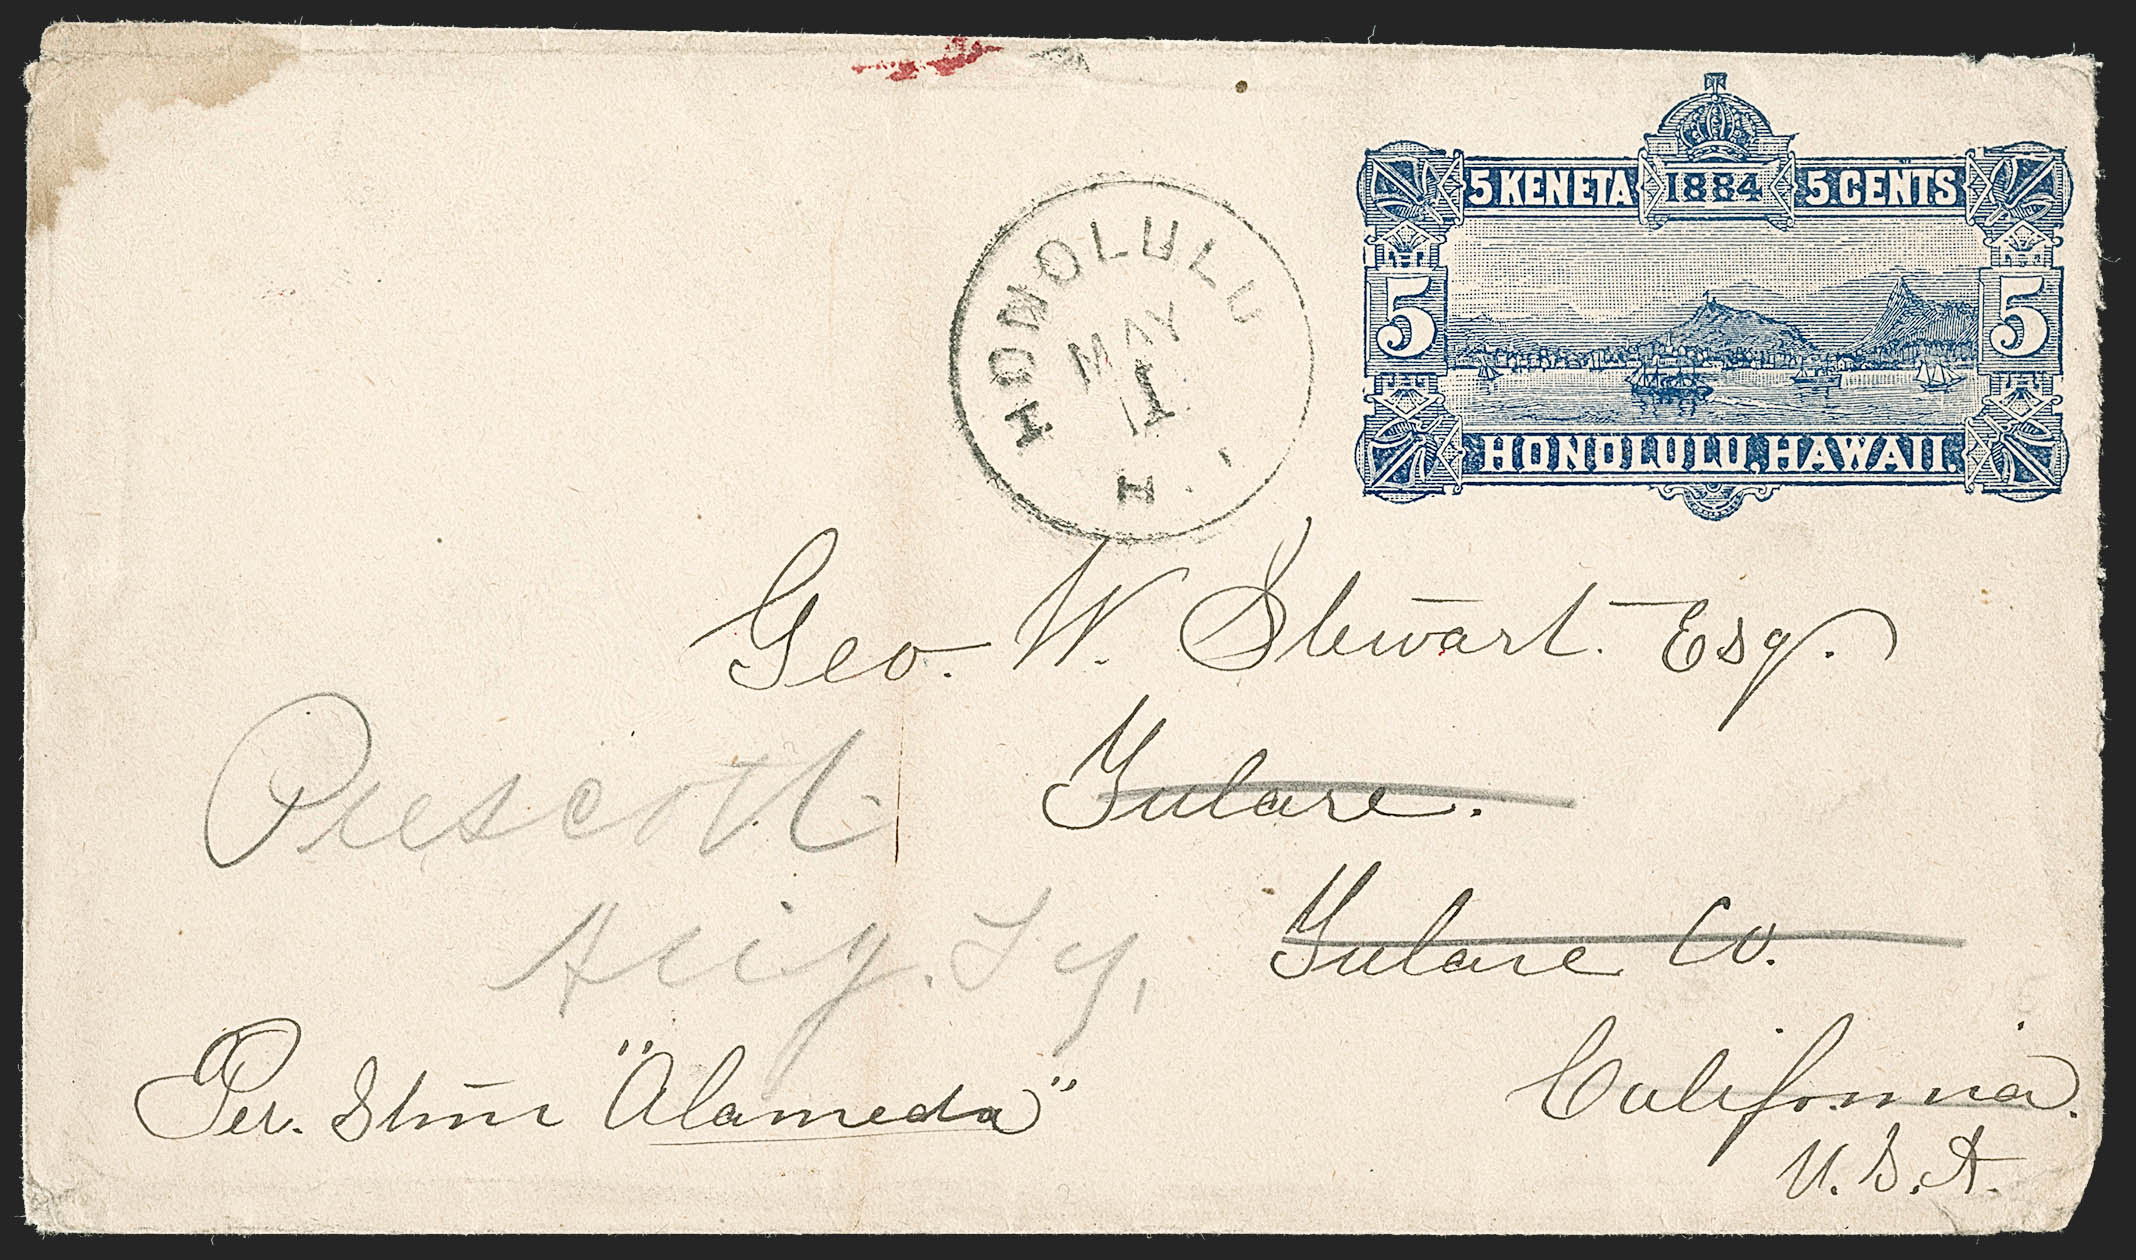 5 KENETA 1884 5 CENTS
5 5
HONOLULU, HAWAII.
HONOLULU
MAY
1
H
Geo. W. Stewart. Esq.
Tulare.
Tulare Co.
California.
U.S.A.
Prescott
Ariz. Ty,
Per. Stmr "Alameda"